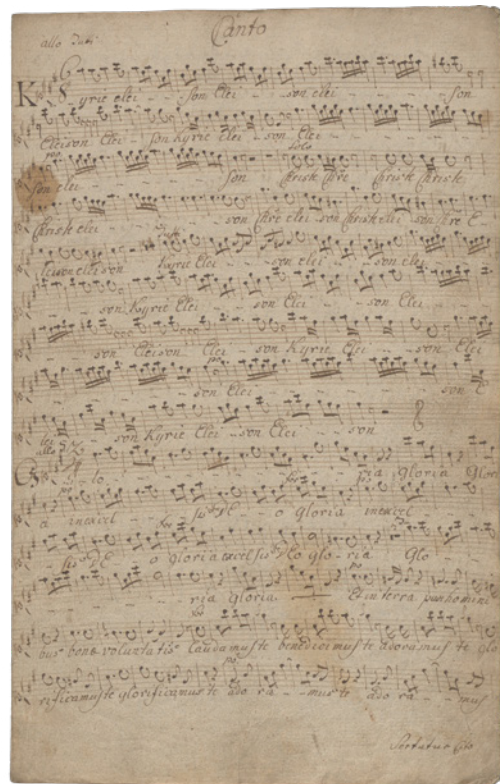 Canto
allo Tutti
Kyrie elei - - son Elei - - son elei - - son
Eleison Elei - son Kyrie Elei - son Elei - - -
pia. Solo
son elei - - - - son Christe Chre Christe Christe
Christe elei - - - son Chre elei - son Christe elei - son Chre E -
leison eleison Kyrie Elei - - son elei - - son elei - -
- - son Kyrie Elei - - son Elei - - son Elei - -
- - son Eleison Elei - son Kyrie Elei - - son Elei
- - - - son Elei - - - - son E
lei - - son Kyrie Elei - son Elei - - son
allo
Glo - - - - - ria Gloria Glor
a inexcel - - sis DE - o Gloria inexcel
- sis DE o gloria excelsis Deo glo - ria Glo
- - - - ria Gloria Et in terra pax homini
bus bone voluntatis laudamus te benedicimus te adoramus te glo
rificamus te glorificamus te ado ra - - mus te ado ra - - mus